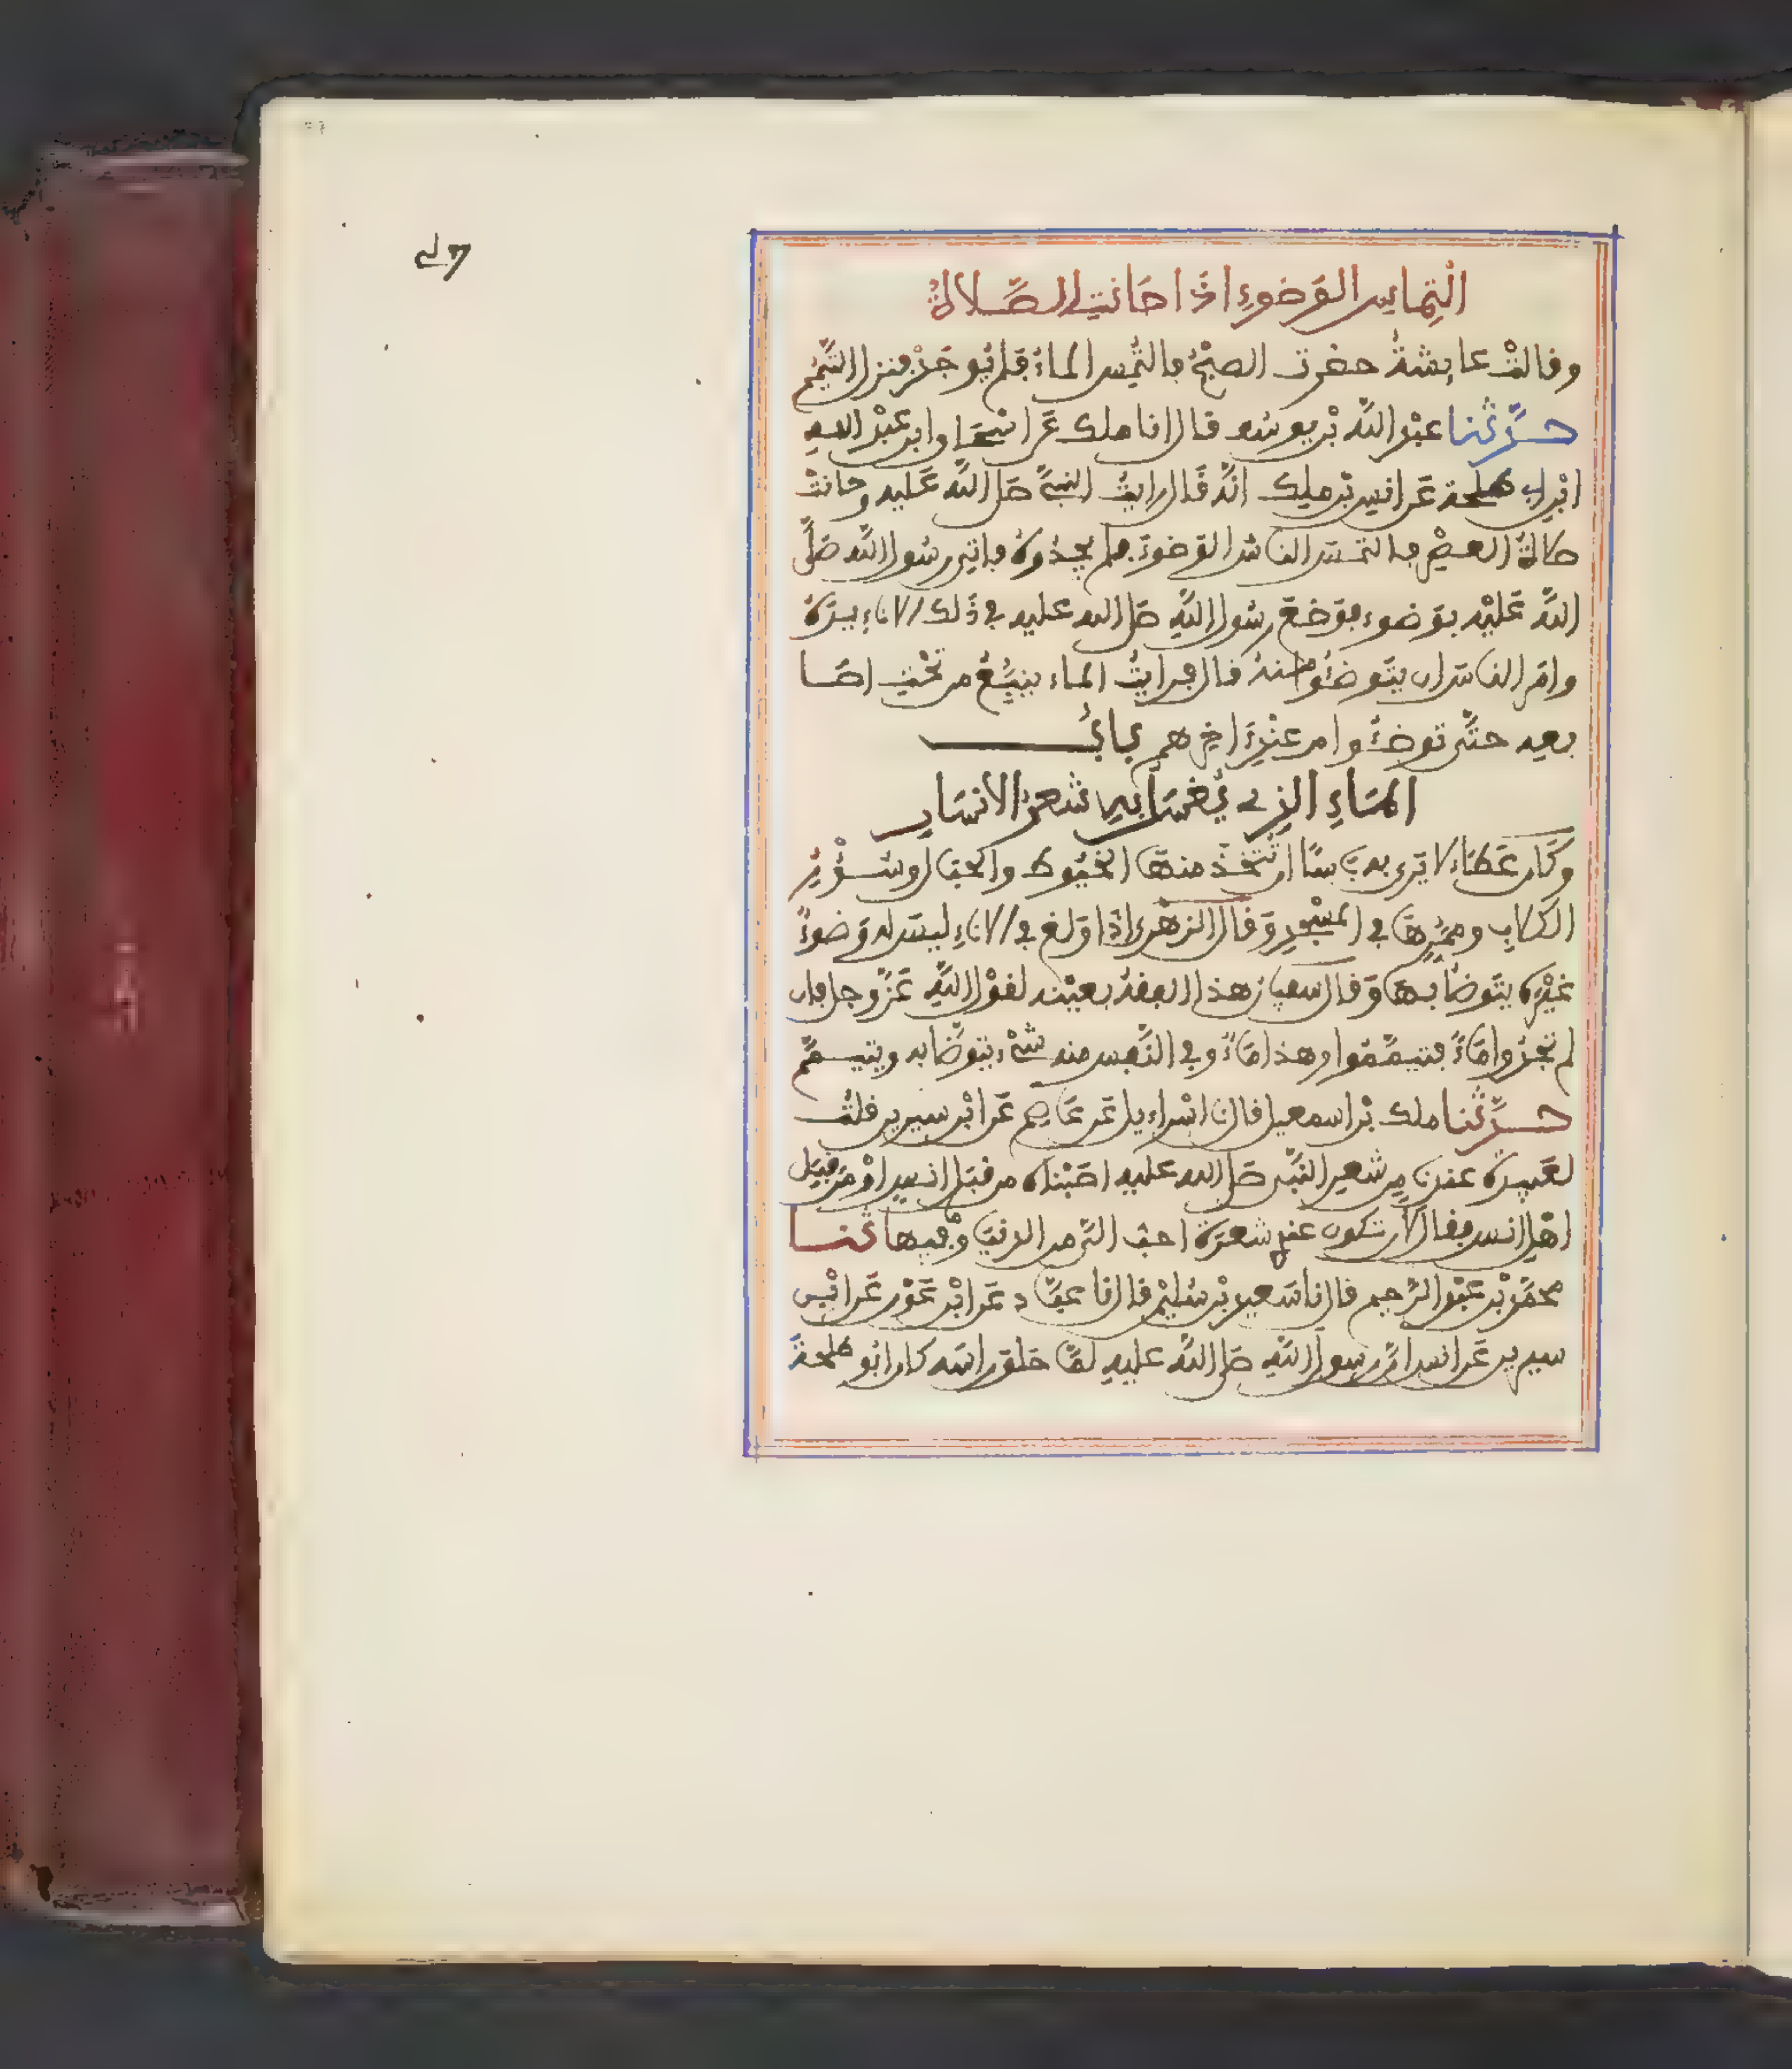 التماس الوضوء اذا حانت الصلاة
وقالت عايشة حضرت الصبح فالتمس الماء فلم يوجد فنزل التيمم
حدثنا عبد الله بن يوسف قال انا ملك عن اسحاق ابن عبد الله
ابن ابي طلحة عن انس بن ملك انه قال رايت النبي صلى الله عليه وحانت
صلاة العصر فالتمس الناس الوضوء فلم يجدوه فاتي رسول الله صلى
الله عليه بوضوء فوضع رسول الله صلى الله عليه في ذلك الاناء يده
وامر الناس ان يتوضئوا منه قال فرايت الماء ينبع من تحت اصا
بعه حتى توضئوا من عند اخرهم باب
الماء الذي يغسل به شعر الانسان
وكان عطاء لا يرى به باسا ان تتخذ منها الخيوط والحبال وسؤر
الكلاب وممرها في المسجد وقال الزهري اذا ولغ في الاناء ليس له وضوء
غيره يتوضا بها وقال سفيان هذا الفقه بعينه لقول الله عز وجل فان
لم تجدوا ماء فتيمموا وهذا ماء وفي النفس منه شيء يتوضا به ويتيمم
حدثنا ملك بن اسمعيل قال نا اسراءيل عن عاصم عن ابن سيرين قلت
لعبيدة عندنا من شعر النبي صلى الله عليه اصبناه من قبل انس او من قبل
اهل انس فقال لان تكون عندي شعرة احب الي من الدنيا وما فيها ثنا
محمد بن عبد الرحيم قال نا سعيد بن سليمن قال نا عباد عن ابن عون عن ابن
سيرين عن انس ان رسول الله صلى الله عليه لما حلق راسه كان ابو طلحة